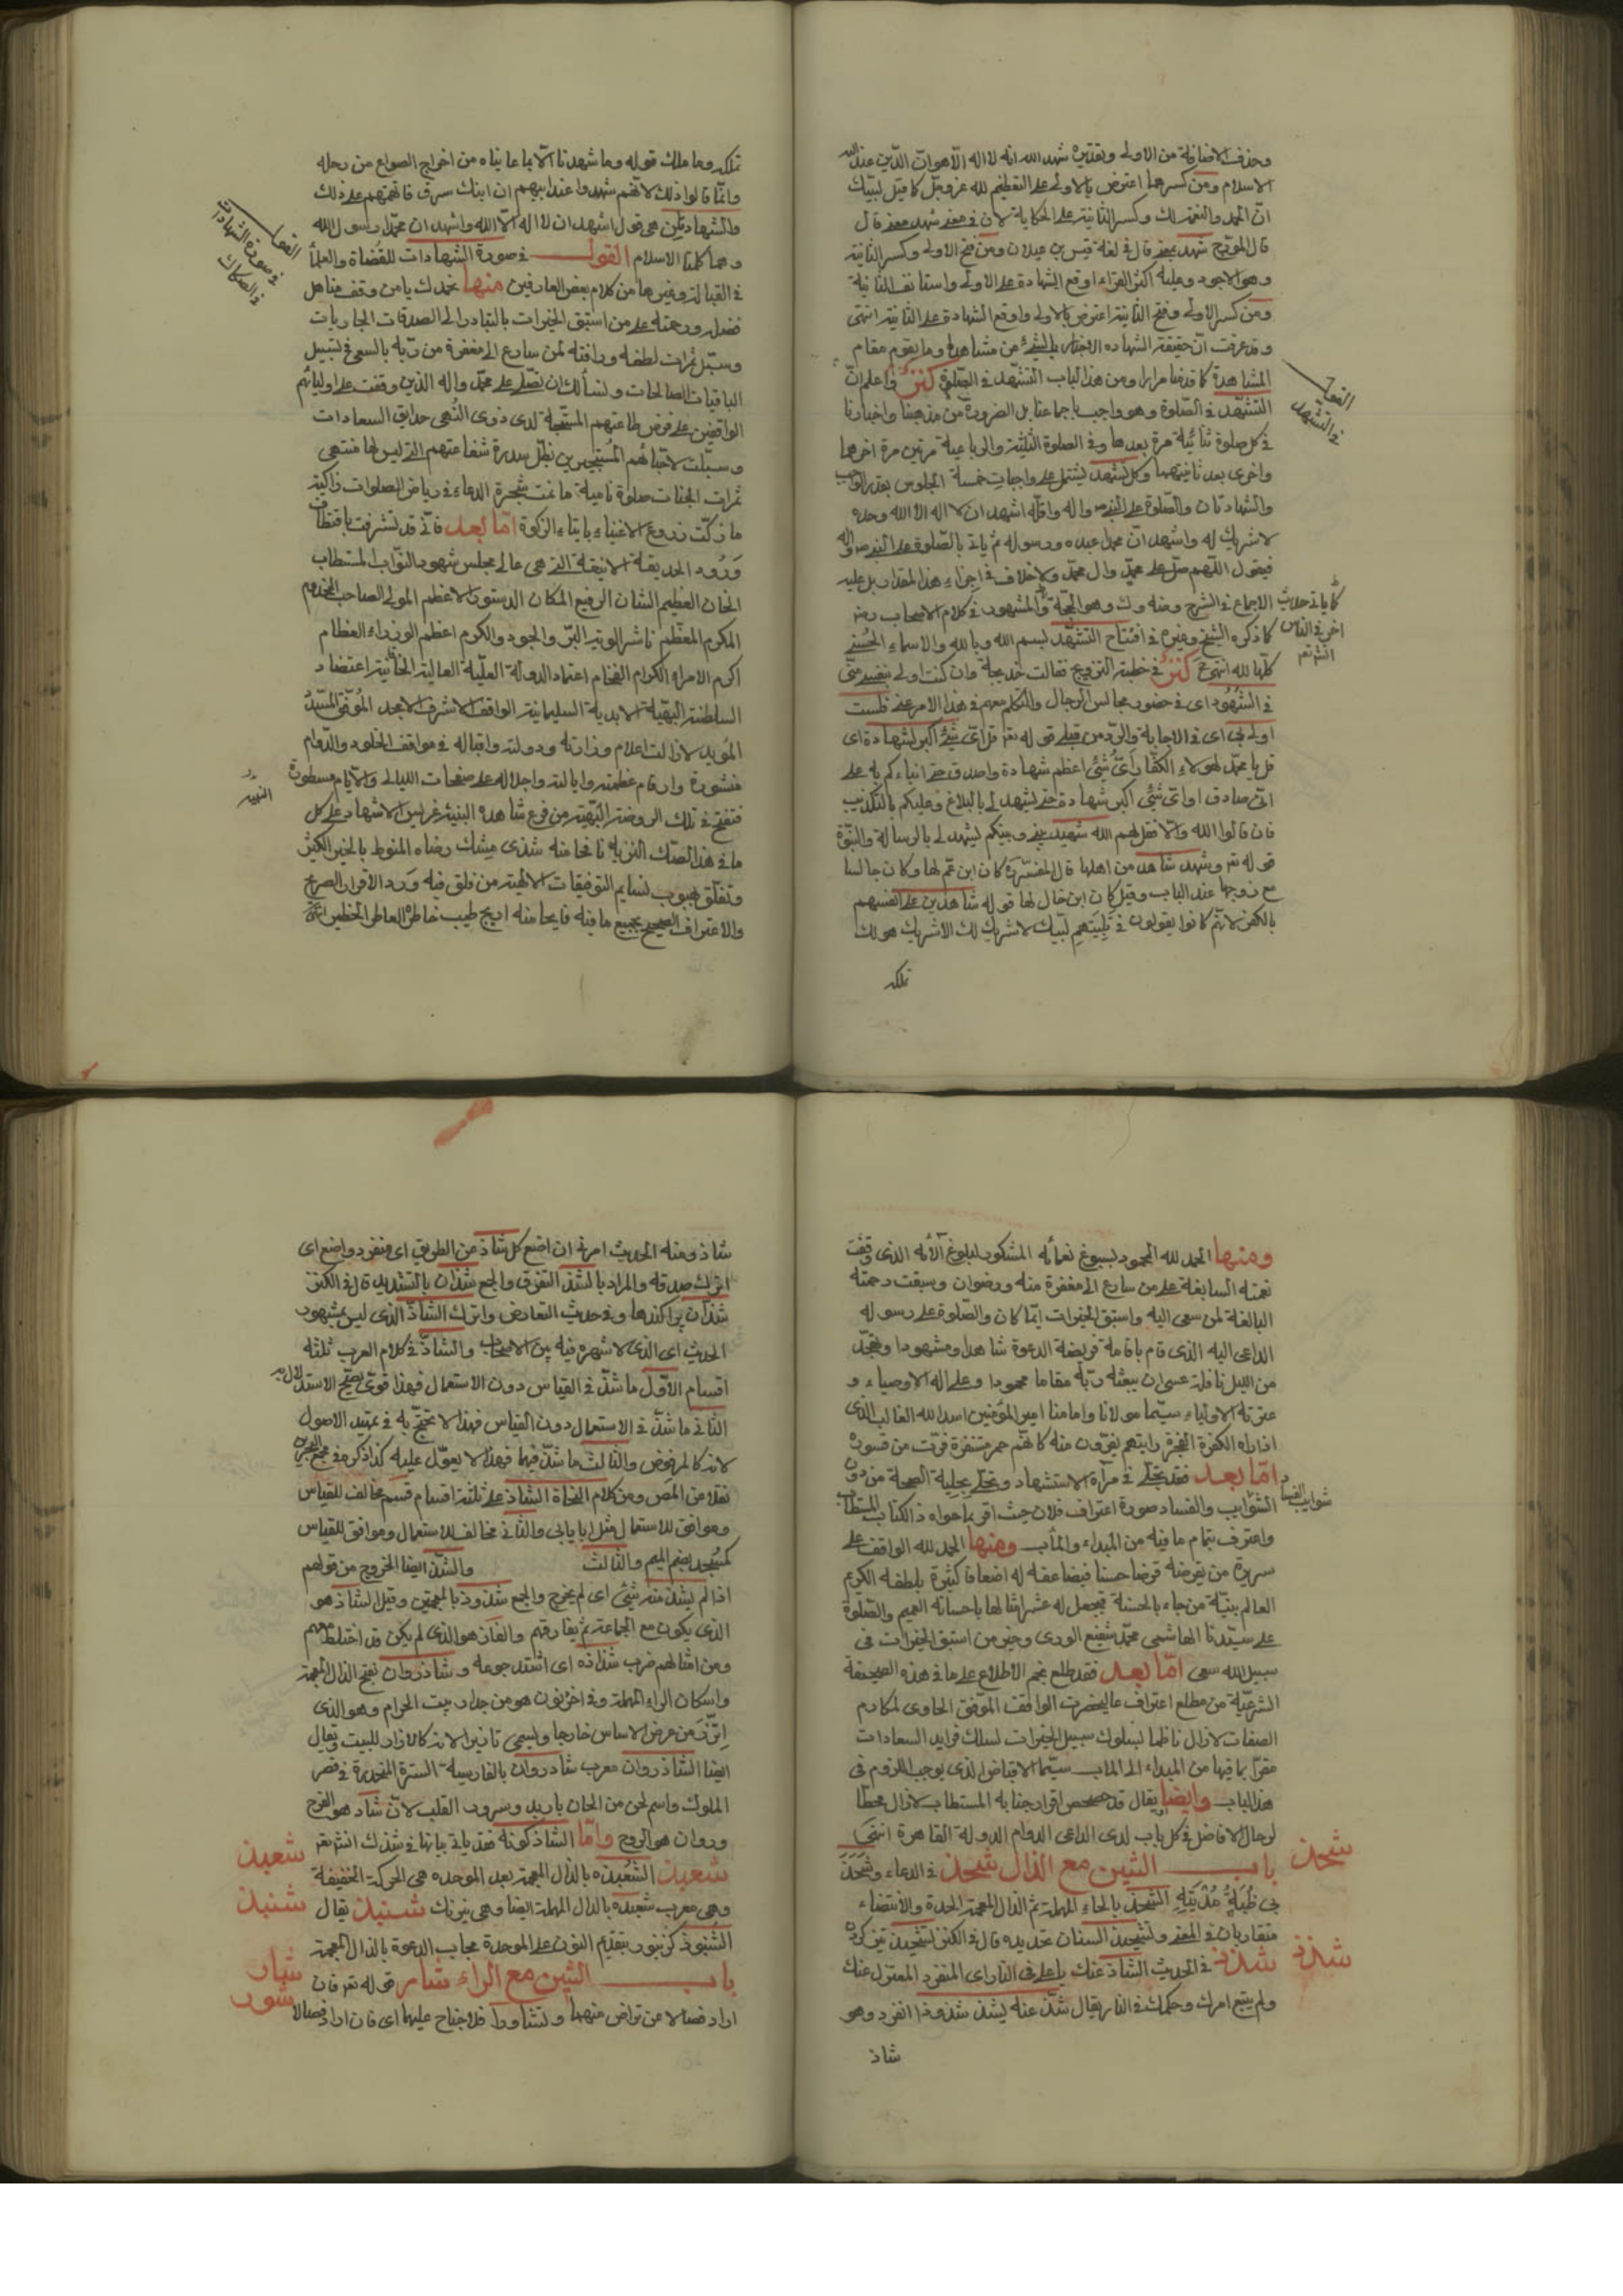 وحذف الاضافة من الاولى وتقديره شهد الله انه لا اله الا هو ان الدين عند الله
الاسلام ومن كسرهما اعترض بالاولى على التعظيم لله عز وجل كما قيل لبيك
ان الحمد والنعمة لك وكسر الثانية على الحكاية لان في معنى شهد معنى قال
قال المؤرج شهد بمعنى قال في لغة قيس بن عيلان ومن فتح الاولى وكسر الثانية
وهو الاجود وعليه اكثر القراء اوقع الشهادة على الاولى واستانف الثانية
ومن كسر الاولى وفتح الثانية اعترض بالاولى واوقع الشهادة على الثانية انتهى
وقد عرفت ان حقيقة الشهادة الاخبار بالشيء عن مشاهدة وما يقوم مقام
المشاهدة كما قدمنا مرارا ومن هذا الباب التشهد في الصلوة كنز فاعلم ان
الفصل في التشهد
التشهد في الصلوة وهو واجب باجماعنا بل الضرورة من مذهبنا واخبارنا
في كل صلوة ثنائية مرة بعدها وفي الصلوة الثلثية والرباعية مرتين مرة اخرهما
واخرى بعد ثانيتهما وكل تشهد يشتمل على واجبات خمسة الجلوس بقدر الواجب
والشهادتان والصلوة على النبي ص واله واقله اشهد ان لا اله الا الله وحده
لا شريك له واشهد ان محمدا عبده ورسوله ثم ياتي بالصلوة على النبي ص واله
فيقول اللهم صل على محمد وال محمد ولا خلاف في اجزاء هذا المقدار بل عليه
الاجماع في الشرح وفيه وهو الحجة والمشهور في كلام الاصحاب رض
كما ذكره الشيخ وغيره في افتتاح التشهد بسم الله وبالله والاسماء الحسنى
كلها لله انتهى كنز في خطبة التزويج فقالت خديجة وان كنت اولى بنفسي مني
في الشهود اى في حضور مجالس الرجال والتكلم معهم في هذا الامر عني فلست
اولى بي اى في الاجابة والرد من قبلي قوله تعر قل اى شئ اكبر شهادة اى
قل يا محمد لهولاء الكفار اى شئ اعظم شهادة واصدق حتى انباءكم به على
اني صادق او اى شئ اكبر شهادة حتى يشهد لي بالبلاغ وعليكم بالتكذيب
فان قالوا الله والا فقل لهم الله شهيد بيني وبينكم يشهد لي بالرسالة والنبوة
قوله تعر وشهد شاهد من اهلها قال المفسرة كان ابن عم لها وكان جالسا
مع زوجها عند الباب وقيل كان ابن خال لها قوله شاهدين على انفسهم
بالكفر لانهم كانوا يقولون في تلبيتهم لبيك لا شريك لك الا شريك هو لك
تملكه
تملكه وما ملك قوله وما شهدنا الا بما عايناه من اخراج الصواع من رحله
وانما قالوا ذلك لانهم شهدوا عند ابيهم ان ابنك سرق فاتهمهم على ذلك
والشهادتين هي قول اشهد ان لا اله الا الله واشهد ان محمدا رسول الله
وهما كلمتا الاسلام القول في صورة الشهادات للقضاة والعلما
في القبالة وغيرها من كلام بعض العارفين منها نحمدك يا من وقف مناهل
فضله ورحمته على من استبق الخيرات بالتبادر الى الصدقات الجاريات
وسبل ثمرات لطفه ورافته لمن سارع الى مغفرة من ربه بالسعي في تسبيل
الباقيات الصالحات ونسألك ان تصلى على محمد واله الذين وقفت على اوليائهم
الواقفين على فرض طاعتهم المستجبة لدى ذوى النهى حدايق السعادات
وسبلت لاحبائهم المستجيرين بظل سدرة شفاعتهم التي ليس لها منتهى
ثمرات الجنات صلوة نامية ما نمت شجرة الدعاء في رياض الصلوات زاكية
ما زكت زروع الاغنياء بايتاء الزكوة اما بعد فاني قد تشرفت باقتطاف
ورود الحديقة الانيقة التي هي عالي مجلس شهود النواب المستطاب
الخان العظيم الشان الرفيع المكان الدستور الاعظم المولى الصاحب المخدوم
المكرم المعظم ناشر الوية البر والجود والكرم اعظم الوزراء العظام
اكرم الامراء الكرام الفخام اعتماد الدولة العلية العالية الخاقانية اعتضاد
السلطنة البهية الابدية السليمانية الواقف الاشرف الامجد الموفق المسدد
المويد لا زالت اعلام وزارته ودولته واقباله في مواقف الخلود والدوام
منشورة وارقام عظمته وايالته واجلاله على صفحات الليالي والايام مسطورة
فتفتح في تلك الروضة البهية من فرع شاهده البنية غريس الاشهاد على كل
ما في هذا الصك النزيه نافحا منه شذى مسك رضاه المنوط بالخير الكثير
وتفلق بهبوب نسايم التوفيقات الالهية من فلق فيه ورد الاقرار الصريح
والاعتراف الصحيح بجميع ما فيه فايحا منه اريج طيب خاطره العاطر الخطير اعنى
ومنها الحمد لله المحمود بسبوغ نعمائه المشكور لبلوغ آلائه الذى وقفت
نعمته السابغة على من سارع الى مغفرة منه ورضوان وسبقت رحمته
البالغة لمن سعى اليه واستبق الخيرات ايما كان والصلوة على رسوله
الداعى اليه الذى قام باقامة فريضة الدعوة شاهدا ومشهودا وتهجد
من الليل نافلة عسى ان يبعثه ربه مقاما محمودا وعلى اله الاوصياء و
عترته الاولياء سيما مولانا وامامنا امير المؤمنين اسد الله الغالب الذى
اذا راه الكفرة الفجرة رايتهم يفرون منه كانهم حمر مستنفرة فرت من قسورة
اما بعد فقد تجلى في مرآة الاستشهاد وتحلى بحلية الصحة من دون
الشوايب والفساد صورة اعتراف فلان حيث اقر بما حواه ذا الكتاب المستطاب
واعترف بتمام ما فيه من المبداء والمآب ومنها الحمد لله الواقف على
سريرة من يقرضه قرضا حسنا فيضاعفه له اضعافا كثيرة بلطفه الكريم
العالم بنية من جاء بالحسنة فيجعل له عشر امثالها باحسانه العميم والصلوة
على سيدنا الهاشمى محمد شفيع الورى وخير من استبق الخيرات في
سبيل الله سعى اما بعد فقد طلع نجم الاطلاع على ما في هذه الصحيفة
الشرعية من مطلع اعتراف عاليحضرت الواقف الموفق الحاوى لمكارم
الصفات لا زال ناظما لسلوك سبيل الخيرات لسلك فرايد السعادات
مقرا بما فيها من المبداء الى المآب سيما الاقباض الذى يوجب اللزوم في
هذا الباب وايضا يقال قد حصحص اقرار جنابه المستطاب لا زال محطا
لرحال الافاضل في كل باب لدى الداعى الدوام الدولة القاهرة انتهى
باب الشين مع الذال شحذ في الدعاء وشحذ
لي ظبة مديته الشحذ بالحاء المهملة ثم الذال المعجمة الحدة والانتضاء
متقاربان في المعنى وتشحيذ السنان تحديده قال في الكنز تشحيذ تيز كردن
شذذ في الحديث الشاذ عنك يا على في النار اى المنفرد المعتزل عنك
ولم يتبع امرك وحكمك في النار يقال شذ عنه يشذ شذوذا انفرد وهو
شاذ
شاذ ومنه الحديث امرني ان اضع كل شاذ عن الطريق اى منفرد واضع اى
اترك صدقه والمراد بالشذ التفرق والجمع شذان بالتشديد قال في الكنز
شذان پراكندها وفي حديث التعارض واترك الشاذ الذى ليس بمشهور
الحديث اى الذى لا شهرة فيه بين الاصحاب والشاذ في كلام العرب ثلثة
اقسام الاول ما شذ في القياس دون الاستعمال فهذا قوى يصح الاستدلال به
الثاني ما شذ في الاستعمال دون القياس فهذا لا يحتج به في تمهيد الاصول
لانه كالمرفوض والثالث ما شذ فيهما فهذا لا يعول عليه كذا ذكره في مجمع البحرين
نقلا من المص ومن كلام النحاة الشاذ على ثلثة اقسام قسم مخالف للقياس
وموافق للاستعمال مثل ابا يابى والثاني مخالف للاستعمال وموافق للقياس
كمسجد بضم الميم والثالث والشذ ايضا الخروج من قولهم
اذا لم يشذ منه شئ اى لم يخرج والجمع شذوذ بالمعجمتين وقيل الشاذ هو
الذى يكون مع الجماعة ثم يفارقهم والفاذ هو الذى لم يكن قد اختلط معهم
ومن امثالهم ضرب شذاذه اى اشتد جوعه وشاذروان بفتح الذال المعجمة
واسكان الراء المهملة وفي اخره نون هو من جدار بيت الحرام وهو الذى
اترك من عرض الاساس خارجا ويسمى تازيرا لانه كالازار للبيت ويقال
ايضا الشاذروان معرب شادروان بالفارسية السترة المنحدرة في قصر
الملوك واسم لحن من الحان باربد وسرور القلب لان شاد هو الفرح
وروان هو الروح واما الشاذكونة فقد ياتي بيانها في شذك انش تعر
شعبذ الشعبذه بالذال المعجمة بعد الموحده هي الحركة الخفيفة
وهي معرب شعبده بالدال المهملة ايضا وهي نيرنك شنبذ يقال
الشنبوذ كزنبور بتقديم النون على الموحدة مجاب الدعوة بالذال المعجمة
باب الشين مع الراء شار قوله تعر فان
ارادا فصالا عن تراض منهما وتشاور فلا جناح عليهما اى فان ارادا فصالا